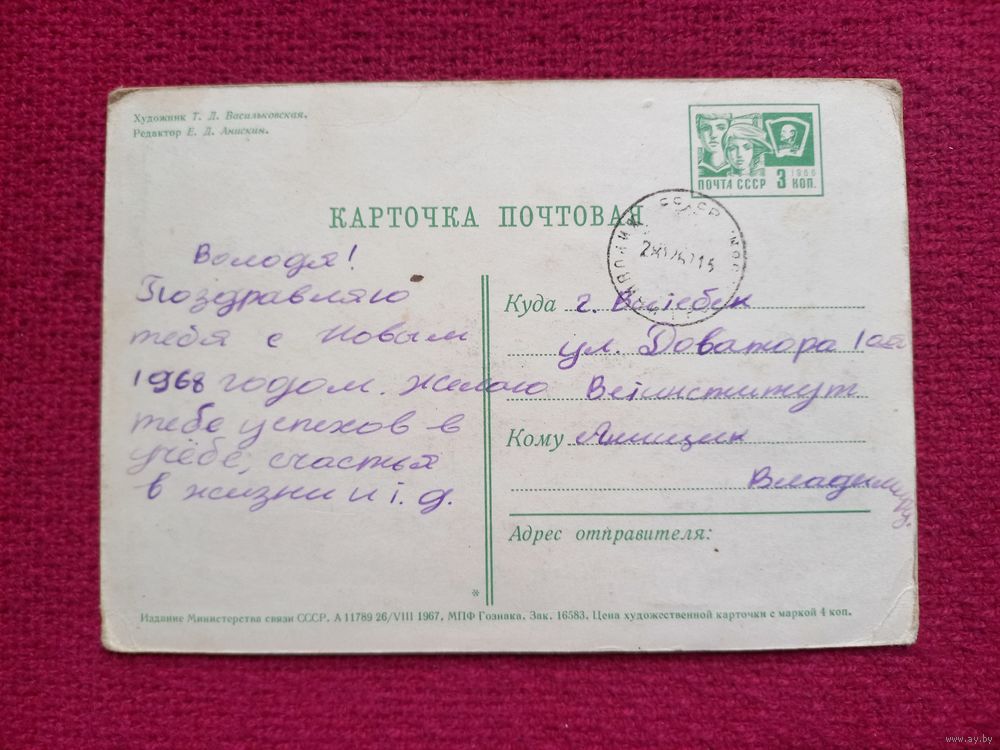 Художник Т. Д. Васильковская.
Редактор Е. Д. Анискин.
1966
ПОЧТА СССР 3 КОП.
КАРТОЧКА ПОЧТОВАЯ
Володя!
Поздравляю
тебя с Новым
1968 годом. Желаю
тебе успехов в
учёбе, счастья
в жизни и т. д.
Куда г. Витебск
ул. Доватора
Ветинститут
Кому
Владимиру.
Адрес отправителя:
*
Издание Министерства связи СССР. А 11789 26/VIII 1967. МПФ Гознака. Зак. 16583. Цена художественной карточки с маркой 4 коп.
www.ay.by